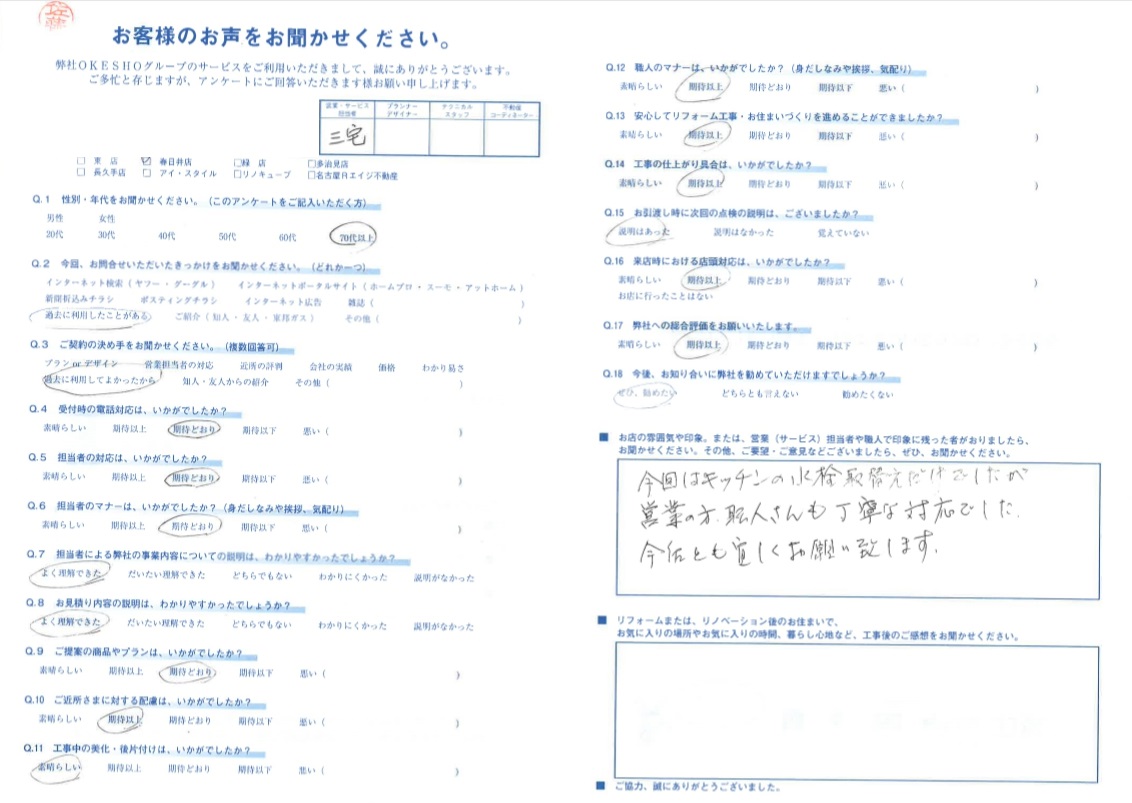 佐藤
お客様のお声をお聞かせください。
弊社OKESHOグループのサービスをご利用いただきまして、誠にありがとうございます。
ご多忙と存じますが、アンケートにご回答いただきます様お願い申し上げます。
営業・サービス担当者 プランナーデザイナー テクニカルスタッフ 不動産コーディネーター
三宅
□ 東 店 ☑ 春日井店 □緑 店 □多治見店
□ 長久手店 □ アイ・スタイル □リノキューブ □名古屋Rエイジ不動産
Q.1 性別・年代をお聞かせください。(このアンケートをご記入いただく方)
男性 女性
20代 30代 40代 50代 60代 70代以上
Q.2 今回、お問合せいただいたきっかけをお聞かせください。(どれか一つ)
インターネット検索(ヤフー・グーグル) インターネットポータルサイト(ホームプロ・スーモ・アットホーム)
新聞折込みチラシ ポスティングチラシ インターネット広告 雑誌( )
過去に利用したことがある ご紹介(知人・友人・東邦ガス) その他( )
Q.3 ご契約の決め手をお聞かせください。(複数回答可)
プラン or デザイン 営業担当者の対応 近所の評判 会社の実績 価格 わかり易さ
過去に利用してよかったから 知人・友人からの紹介 その他( )
Q.4 受付時の電話対応は、いかがでしたか?
素晴らしい 期待以上 期待どおり 期待以下 悪い( )
Q.5 担当者の対応は、いかがでしたか?
素晴らしい 期待以上 期待どおり 期待以下 悪い( )
Q.6 担当者のマナーは、いかがでしたか?(身だしなみや挨拶、気配り)
素晴らしい 期待以上 期待どおり 期待以下 悪い( )
Q.7 担当者による弊社の事業内容についての説明は、わかりやすかったでしょうか?
よく理解できた だいたい理解できた どちらでもない わかりにくかった 説明がなかった
Q.8 お見積り内容の説明は、わかりやすかったでしょうか?
よく理解できた だいたい理解できた どちらでもない わかりにくかった 説明がなかった
Q.9 ご提案の商品やプランは、いかがでしたか?
素晴らしい 期待以上 期待どおり 期待以下 悪い( )
Q.10 ご近所さまに対する配慮は、いかがでしたか?
素晴らしい 期待以上 期待どおり 期待以下 悪い( )
Q.11 工事中の美化・後片付けは、いかがでしたか?
素晴らしい 期待以上 期待どおり 期待以下 悪い( )
Q.12 職人のマナーは、いかがでしたか?(身だしなみや挨拶、気配り)
素晴らしい 期待以上 期待どおり 期待以下 悪い( )
Q.13 安心してリフォーム工事・お住まいづくりを進めることができましたか?
素晴らしい 期待以上 期待どおり 期待以下 悪い( )
Q.14 工事の仕上がり具合は、いかがでしたか?
素晴らしい 期待以上 期待どおり 期待以下 悪い( )
Q.15 お引渡し時に次回の点検の説明は、ございましたか?
説明はあった 説明はなかった 覚えていない
Q.16 来店時における店頭対応は、いかがでしたか?
素晴らしい 期待以上 期待どおり 期待以下 悪い( )
お店に行ったことはない
Q.17 弊社への総合評価をお願いいたします。
素晴らしい 期待以上 期待どおり 期待以下 悪い( )
Q.18 今後、お知り合いに弊社を勧めていただけますでしょうか?
ぜひ、勧めたい どちらとも言えない 勧めたくない
■ お店の雰囲気や印象。または、営業(サービス)担当者や職人で印象に残った者がおりましたら、
お聞かせください。その他、ご要望・ご意見などございましたら、ぜひ、お聞かせください。
今回はキッチンの水栓取替えだけでしたが
営業の方、職人さんも丁寧な対応でした.
今后とも宜しくお願い致します.
■ リフォームまたは、リノベーション後のお住まいで、
お気に入りの場所やお気に入りの時間、暮らし心地など、工事後のご感想をお聞かせください。
■ ご協力、誠にありがとうございました。